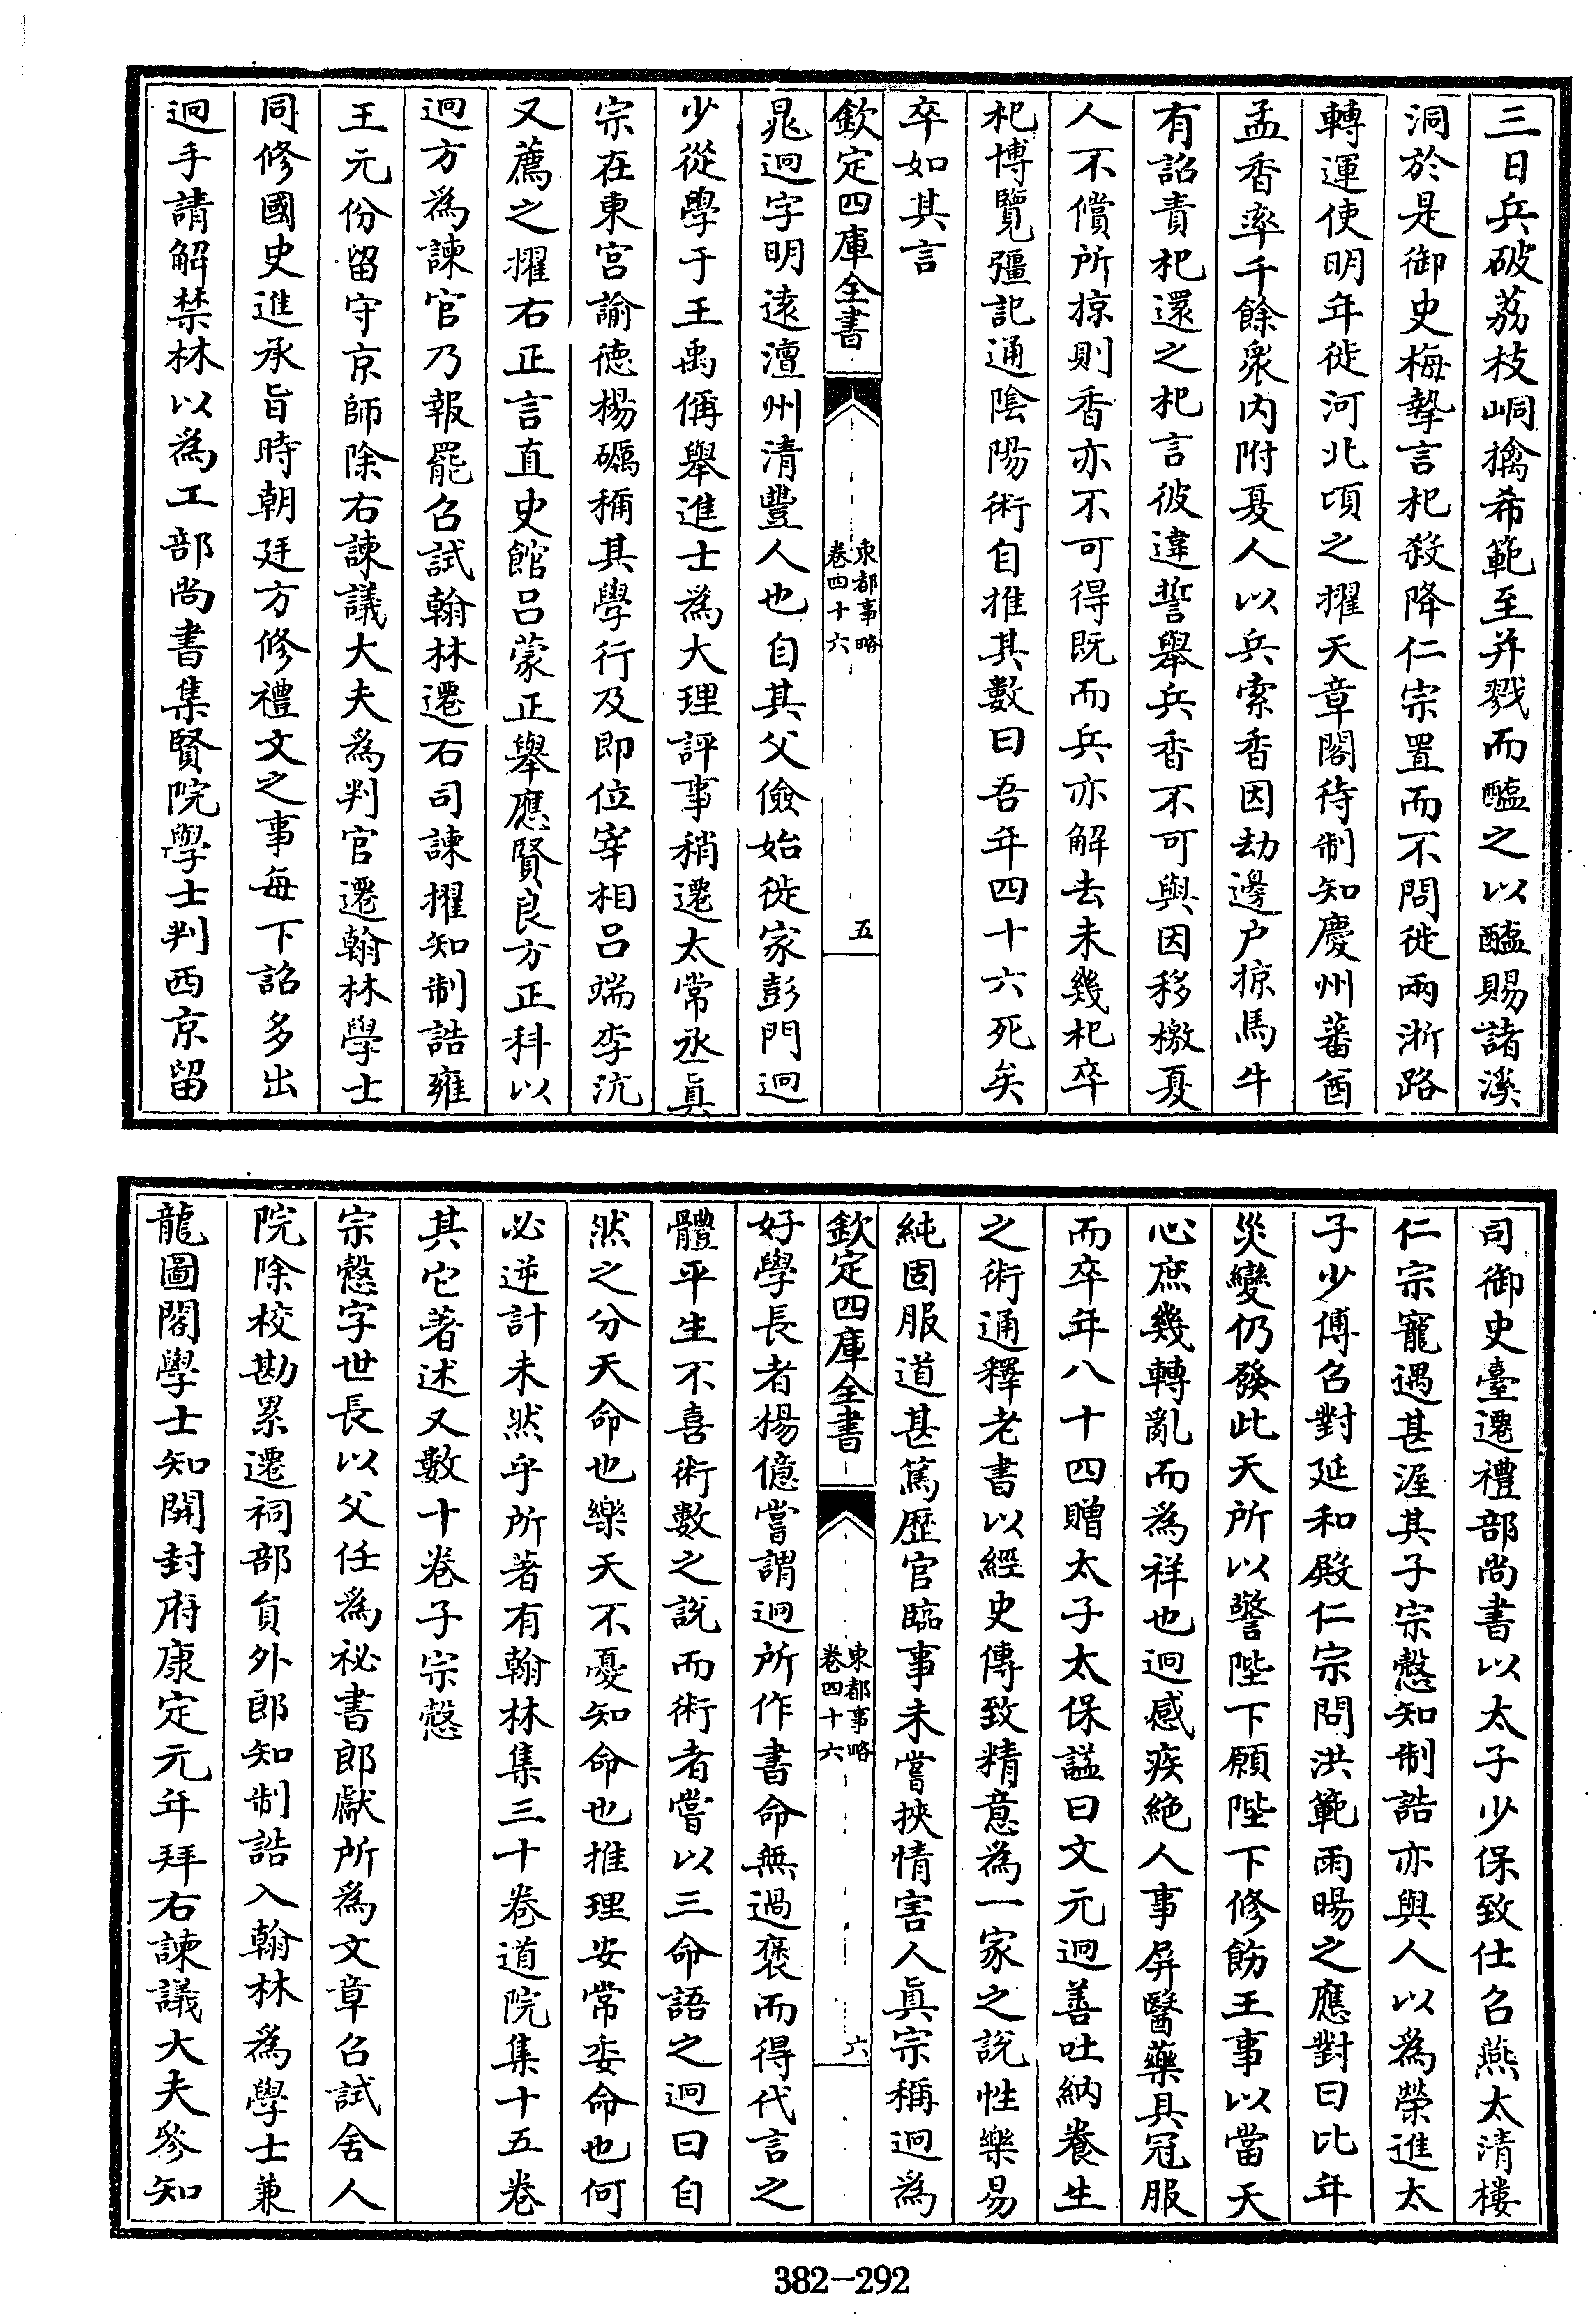 三日兵破荔枝峒擒希範至并戮而醢之以醢賜諸溪
洞於是御史梅摯言杞殺降仁宗置而不問徙兩浙路
轉運使明年徙河北頃之擢天章閣待制知慶州蕃酋
孟香率千餘衆内附夏人以兵索香因劫邊户掠馬牛
有詔責杞還之杞言彼違誓舉兵香不可與因移檄夏
人不償所掠則香亦不可得既而兵亦解去未幾杞卒
杞博覽彊記通陰陽術自推其數曰吾年四十六死矣
卒如其言
欽定四庫全書
東都事略
卷四十六
五
晁迥字明遠澶州清豐人也自其父儉始徙家彭門迥
少從學于王禹偁舉進士為大理評事稍遷太常丞真
宗在東宫諭德楊礪稱其學行及即位宰相吕端李沆
又薦之擢右正言直史館吕蒙正舉應賢良方正科以
迥方為諫官乃報罷召試翰林遷右司諫擢知制誥雍
王元份留守京師除右諫議大夫為判官遷翰林學士
同修國史進承旨時朝廷方修禮文之事每下詔多出
迥手請解禁林以為工部尚書集賢院學士判西京留
司御史臺遷禮部尚書以太子少保致仕召燕太清樓
仁宗寵遇甚渥其子宗慤知制誥亦與人以為榮進太
子少傅召對延和殿仁宗問洪範雨暘之應對曰比年
災變仍發此天所以警陛下願陛下修飭王事以當天
心庶幾轉亂而為祥也迥感疾絶人事屏醫藥具冠服
而卒年八十四贈太子太保諡曰文元迥善吐納養生
之術通釋老書以經史傳致精意為一家之說性樂易
純固服道甚篤歷官臨事未嘗挾情害人真宗稱迥為
欽定四庫全書
東都事略
卷四十六
六
好學長者楊億嘗謂迥所作書命無過褒而得代言之
體平生不喜術數之說而術者嘗以三命語之迥曰自
然之分天命也樂天不憂知命也推理安常委命也何
必逆計未然乎所著有翰林集三十卷道院集十五卷
其它著述又數十卷子宗慤
宗慤字世長以父任為祕書郎獻所為文章召試舍人
院除校勘累遷祠部員外郎知制誥入翰林為學士兼
龍圖閣學士知開封府康定元年拜右諫議大夫參知
382-292